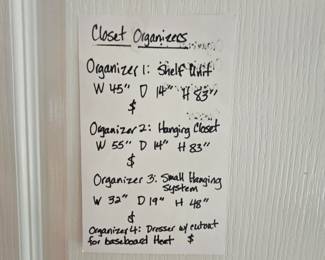 Closet Organizers
Organizer 1: Shelf Unit
W 45" D 14" H 83"
$
Organizer 2: Hanging Closet
W 55" D 14" H 83"
$
Organizer 3: Small Hanging
System
W 32" D 19" H 48"
$
Organizer 4: Dresser w/ cutout
for baseboard Heat $